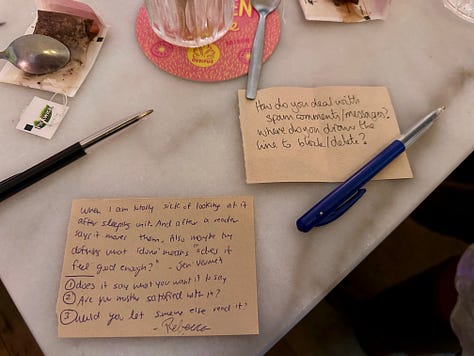 How do you deal with
spam comments/messages?
Where do you draw the
line to block/delete?
When I am totally sick of looking at it
after sleeping And after a reader
says it moves them. Also maybe try
defining what 'done' means "does it
feel good enough?" - Jen
① does it say what you want it to say
② Are you mostly satisfied with it?
③ would you let someone else read it?
- Rebecca